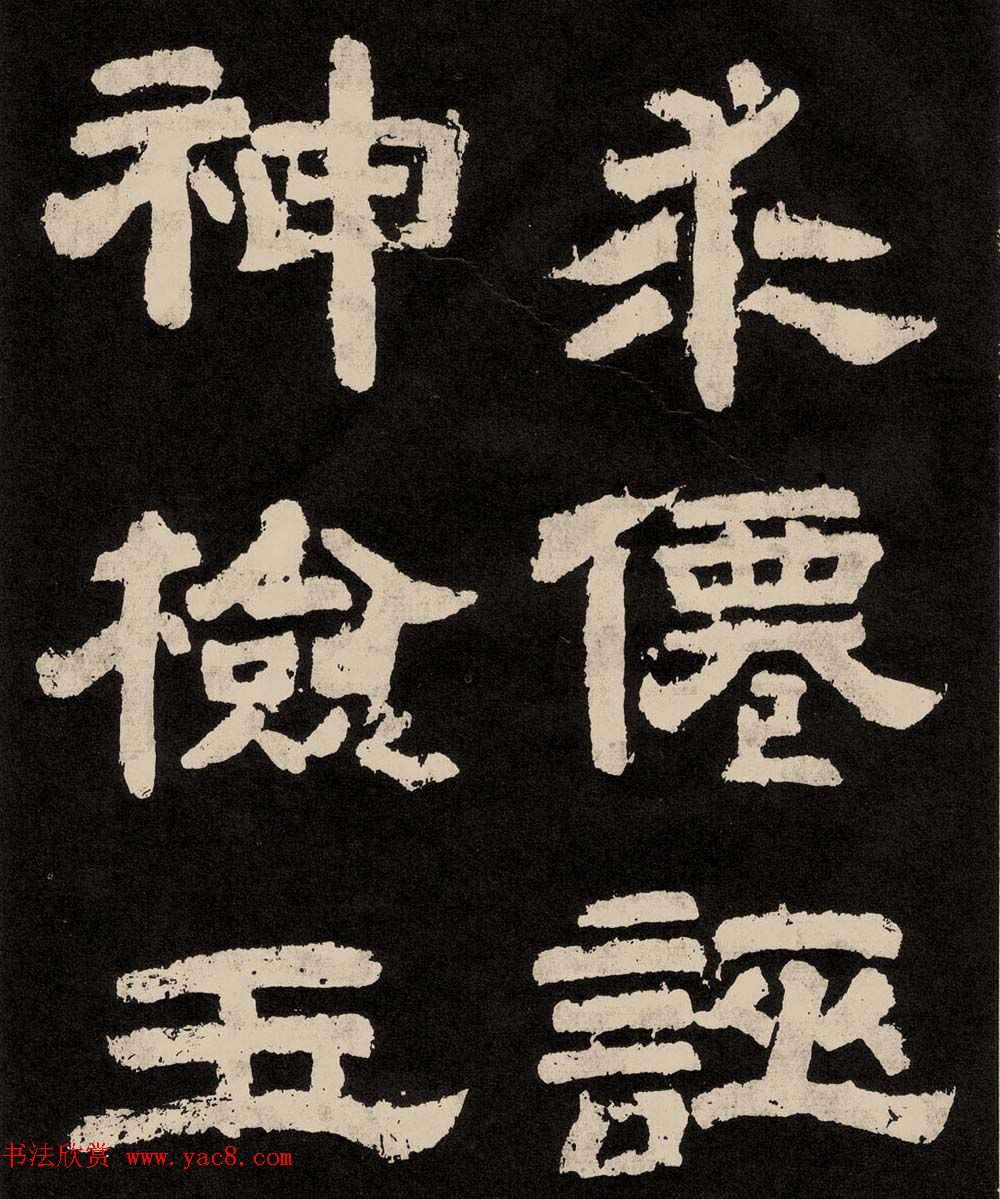 求僊誣
神檢五
书法欣赏 www.yac8.com